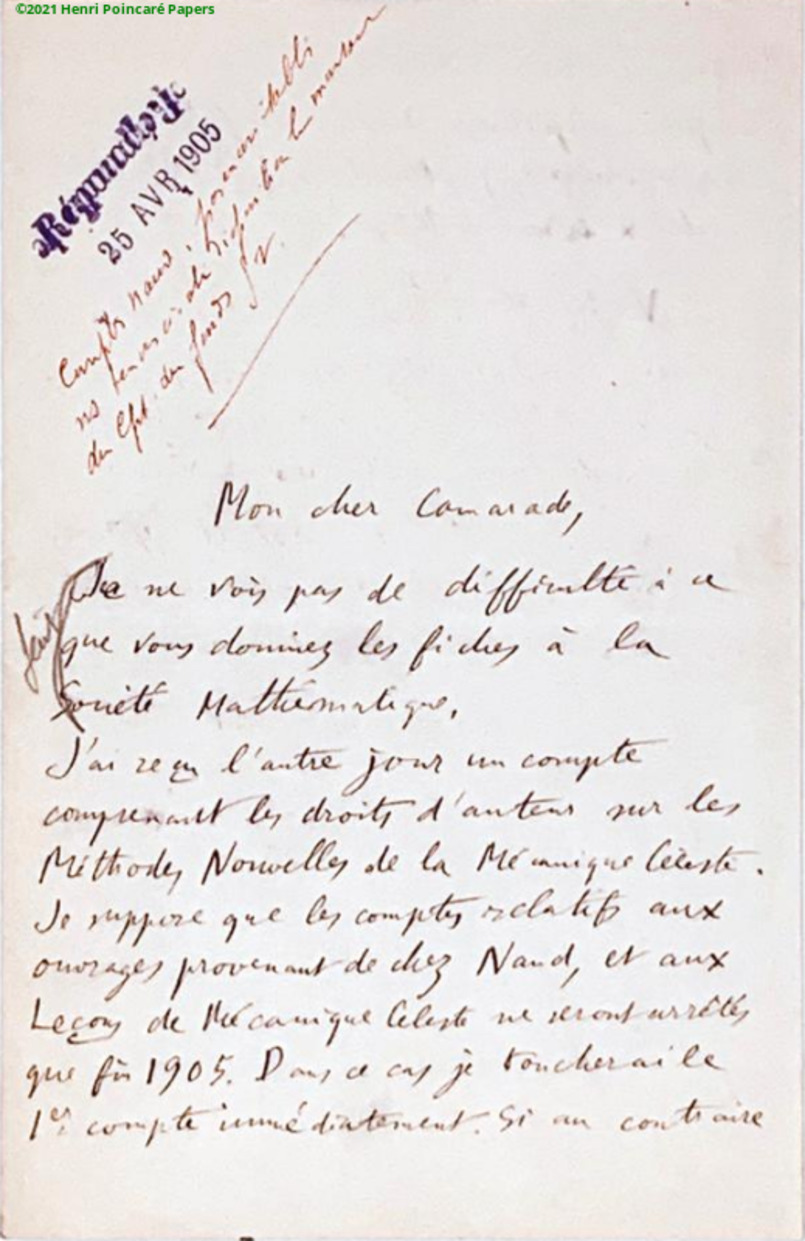 ©2021 Henri Poincaré Papers
Répondu le
25 AVR 1905
Compte Naud,
du fonds
Mon cher Camarade,
Je ne vois pas de difficulté à ce
que vous donniez les fiches à la
Société Mathématique.
J'ai reçu l'autre jour un compte
comprenant les droits d'auteur sur les
Méthodes Nouvelles de la Mécanique Céleste.
Je suppose que les comptes relatifs aux
ouvrages provenant de chez Naud, et aux
Leçons de Mécanique Céleste ne seront arrêtés
que fin 1905. Dans ce cas je toucherai le
1er compte immédiatement. Si au contraire